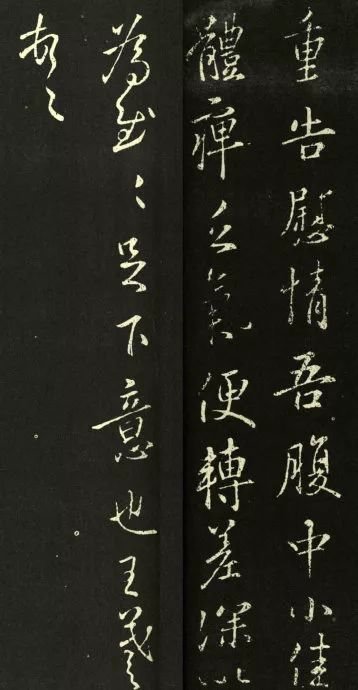 重告慰情吾腹中小佳
體痺乏氣便轉差深以
為足下意也王羲之